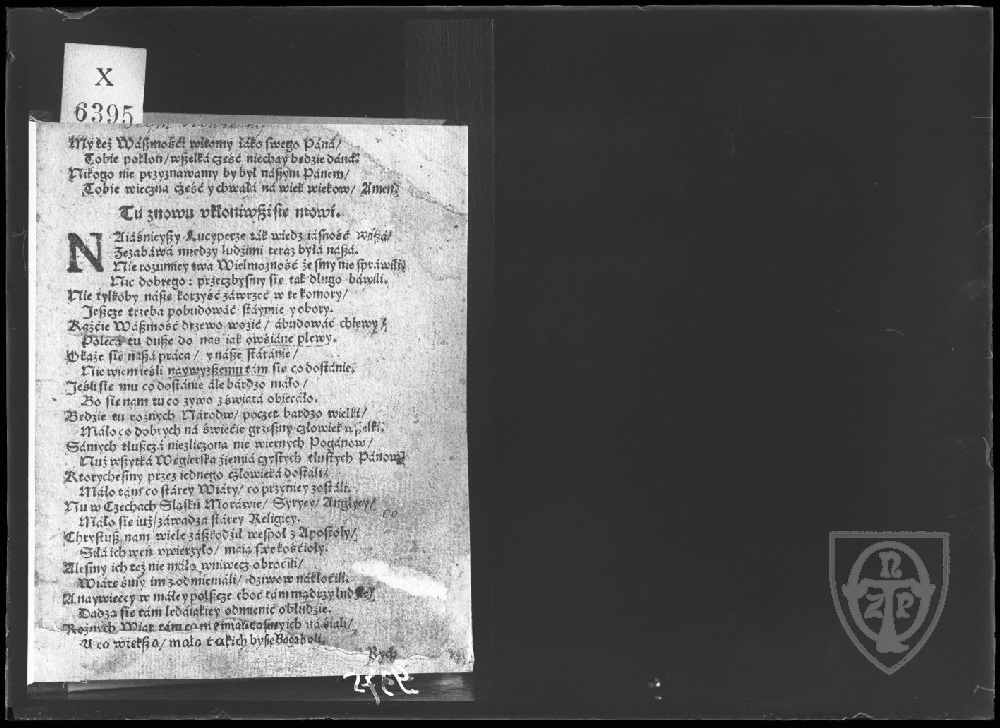 X
6395
My też Waszmości witamy iáko swego Páná/
Tobie pokłon/ wszelka cześć niechay będzie dána.
Nikogo nie przyznawamy by był nászym Pánem/
Tobie wieczna cześć y chwałá ná wiek wiekow/ Amen.
Tu znowu vkłoniwszi sie mowi.
NAiáśnieyszy Lucyperze ták wiedz iásność wászá/
Zezabáwá miedzy ludźmi teraz byłá nászá.
Nie rozumiey twa Wielmożność że smy nie spráwili
Nic dobrego: przeczbysmy sie tak długo báwili.
Nie tylkoby násze korzyść záwrzeć w te komory/
Jeszcze trzebá pobudowáć stáynie y obory.
Każćie Wászmość drzewo wozić/ á budowáć chlewy/
Polecą tu dusze do nas iak owsiáne plewy.
Okaże sie nászá praca/ y násze stáránie/
Nie wiem ieśli naywyższemu tám sie co dostánie.
Jeśli sie mu co dostánie ále bárdzo máło/
Bo sie nam tu co żywo z świátá obiecáło.
Będzie tu rożnych Narodow/ poczet bárdzo wielki/
Máło co dobrych ná świećie grzeszny człowiek
Sámych tłuszczá niezliczona nie wiernych Pogánow/
Nuż wszytká Węgierska ziemiá czystych tłustych Pánow
Ktorychesmy przez iednego człowieká dostáli/
Máło tám co stárey Wiáry/ co przy niey zostáli.
Nu w Czechach Sląsku Moráwie/ Syryey/ Angliey/
Máło sie iuż záwadza stárey Religiey.
Chrystusz nam wiele zászkodził wespoł z Apostoły/
Siłá ich weń vwierzyło/ máią swe kościoły.
Alesmy ich też nie máło wniwecz obroćili/
Wiáre smy im z odmieniáli/ dziwow nátłoćili.
A naywiecey w máłey polszcze choć tám mądrzy ludzie/
Dádzą sie tám ledáiákiey odmienić obłudzie.
Rożnych Wiar tám násiali/
A co większa/ máło tákich by sie Bogá báli.
Bych